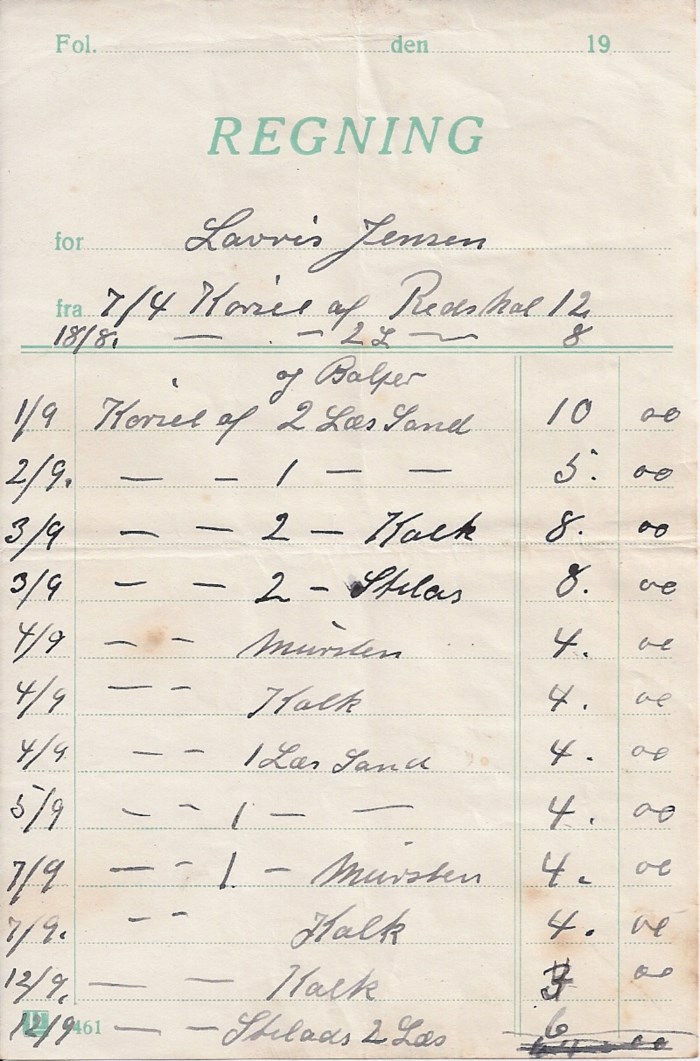 Fol. den 19
REGNING
for Lavris Jensen
fra 7/4 Körsel af Redskab 12
18/8. — — 2 L — 8
og Balger
1/9 Körsel af 2 Læs Sand 10 00
2/9. — — 1 — — 5. 00
3/9 — — 2 — Kalk 8. 00
3/9 — — 2 - Stilas 8. 00
4/9 — - Mursten 4. 00
4/9 — - Kalk 4. 00
4/9 — - 1 Læs Sand 4. 00
5/9 — - 1 — — 4. 00
7/9 — - 1. - Mursten 4. 00
7/9. - - Kalk 4. 00
12/9. — — Kalk 3 00
12/9 461 — — Stilads 2 Læs 6